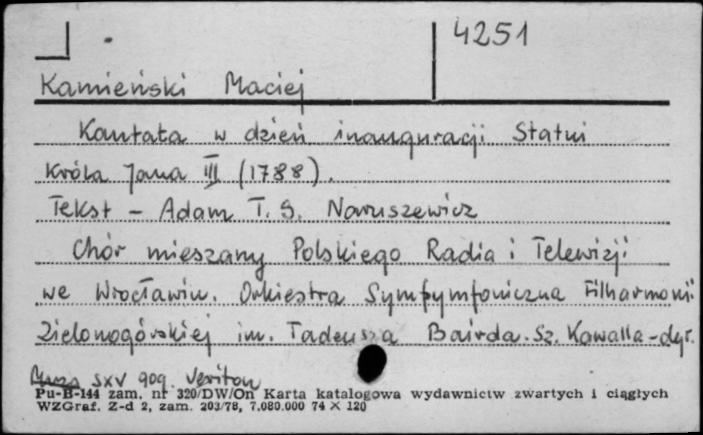 4251
Kamieński Maciej
Kantata w dzień inauguracji Statui
Króla Jana III (1788).
Tekst – Adam T. S. Naruszewicz
Chór mieszany Polskiego Radia i Telewizji
we Wrocławiu. Orkiestra Sympfymfoniczna Filharmonii
Zielonogórskiej im. Tadeusza Bairda. Sz. Kawalla-dyr.
Muza SXV 909. Veriton
Pu-B-144 zam. nr 320/DW/On Karta katalogowa wydawnictw zwartych i ciągłych
WZGraf. Z-d 2, zam. 203/78, 7.080.000 74 X 120